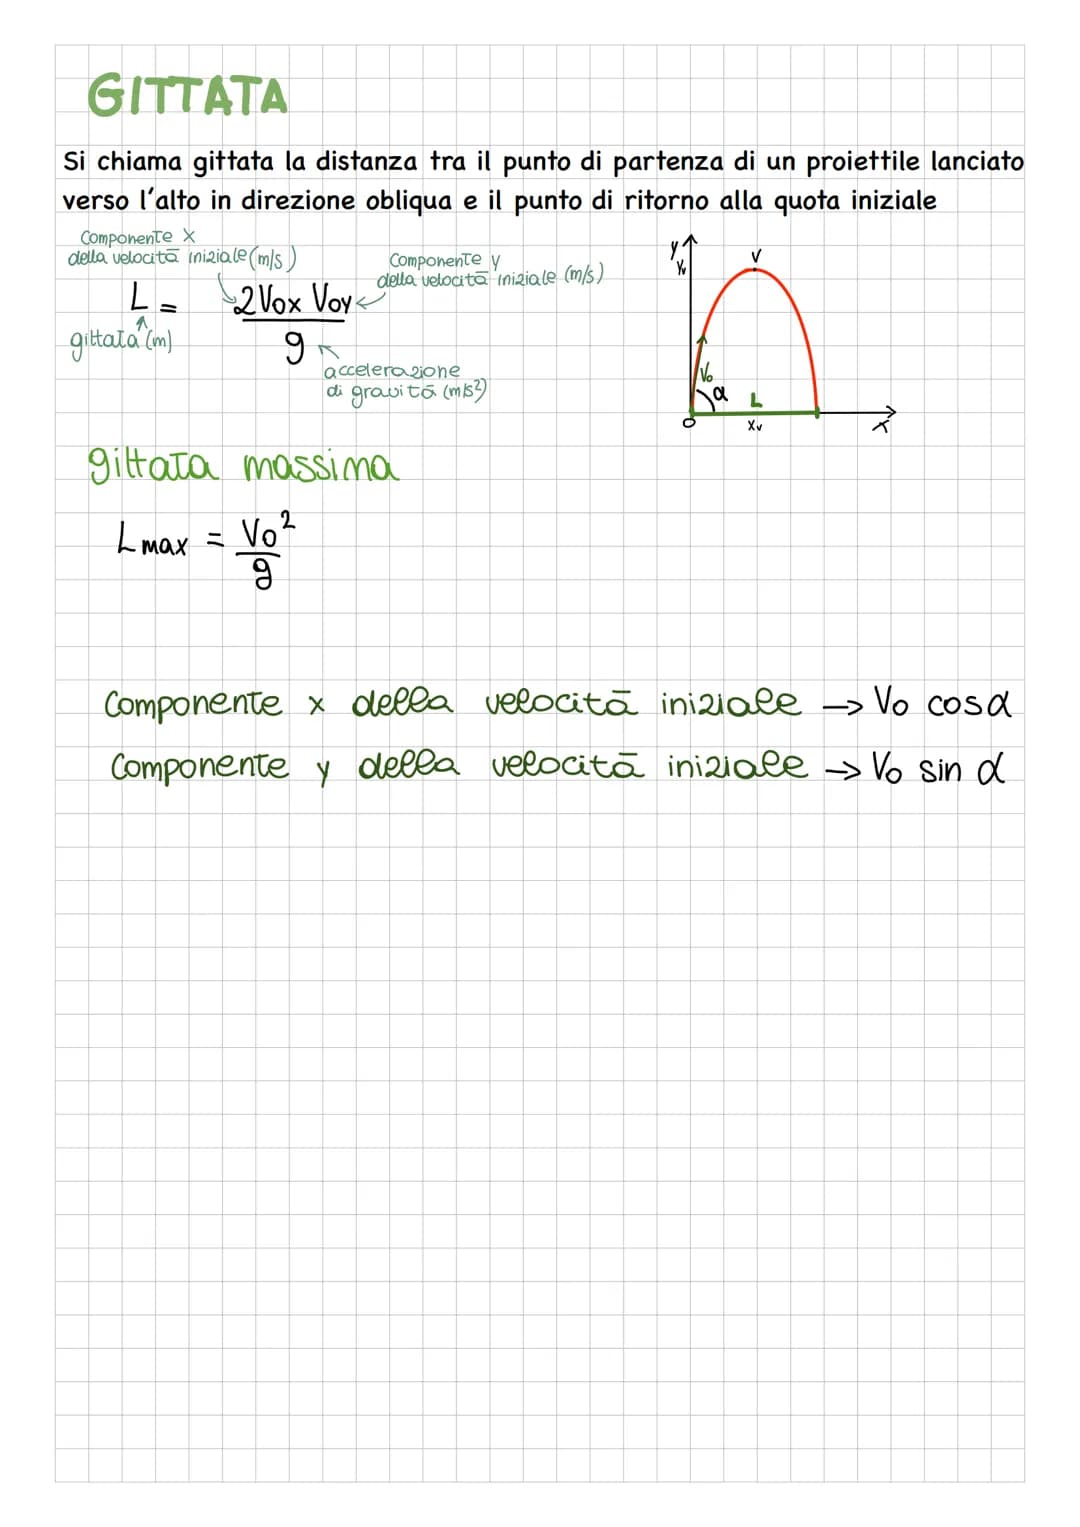 GITTATA
Si chiama gittata la distanza tra il punto di partenza di un proiettile lanciato
verso l'alto in direzione obliqua e il punto di ritorno alla quota iniziale
Componente x
della velocità iniziale (m/s)
Componente y
della velocità iniziale (m/s)
L = 2V₀x V₀y
g
gittata (m)
accelerazione
di gravità (m/s²)
y
yᵥ
V
V₀
α
L
O
xᵥ
x
gittata massima
L max = V₀²
g
Componente x della velocità iniziale → V₀ cosα
Componente y della velocità iniziale → V₀ sin α